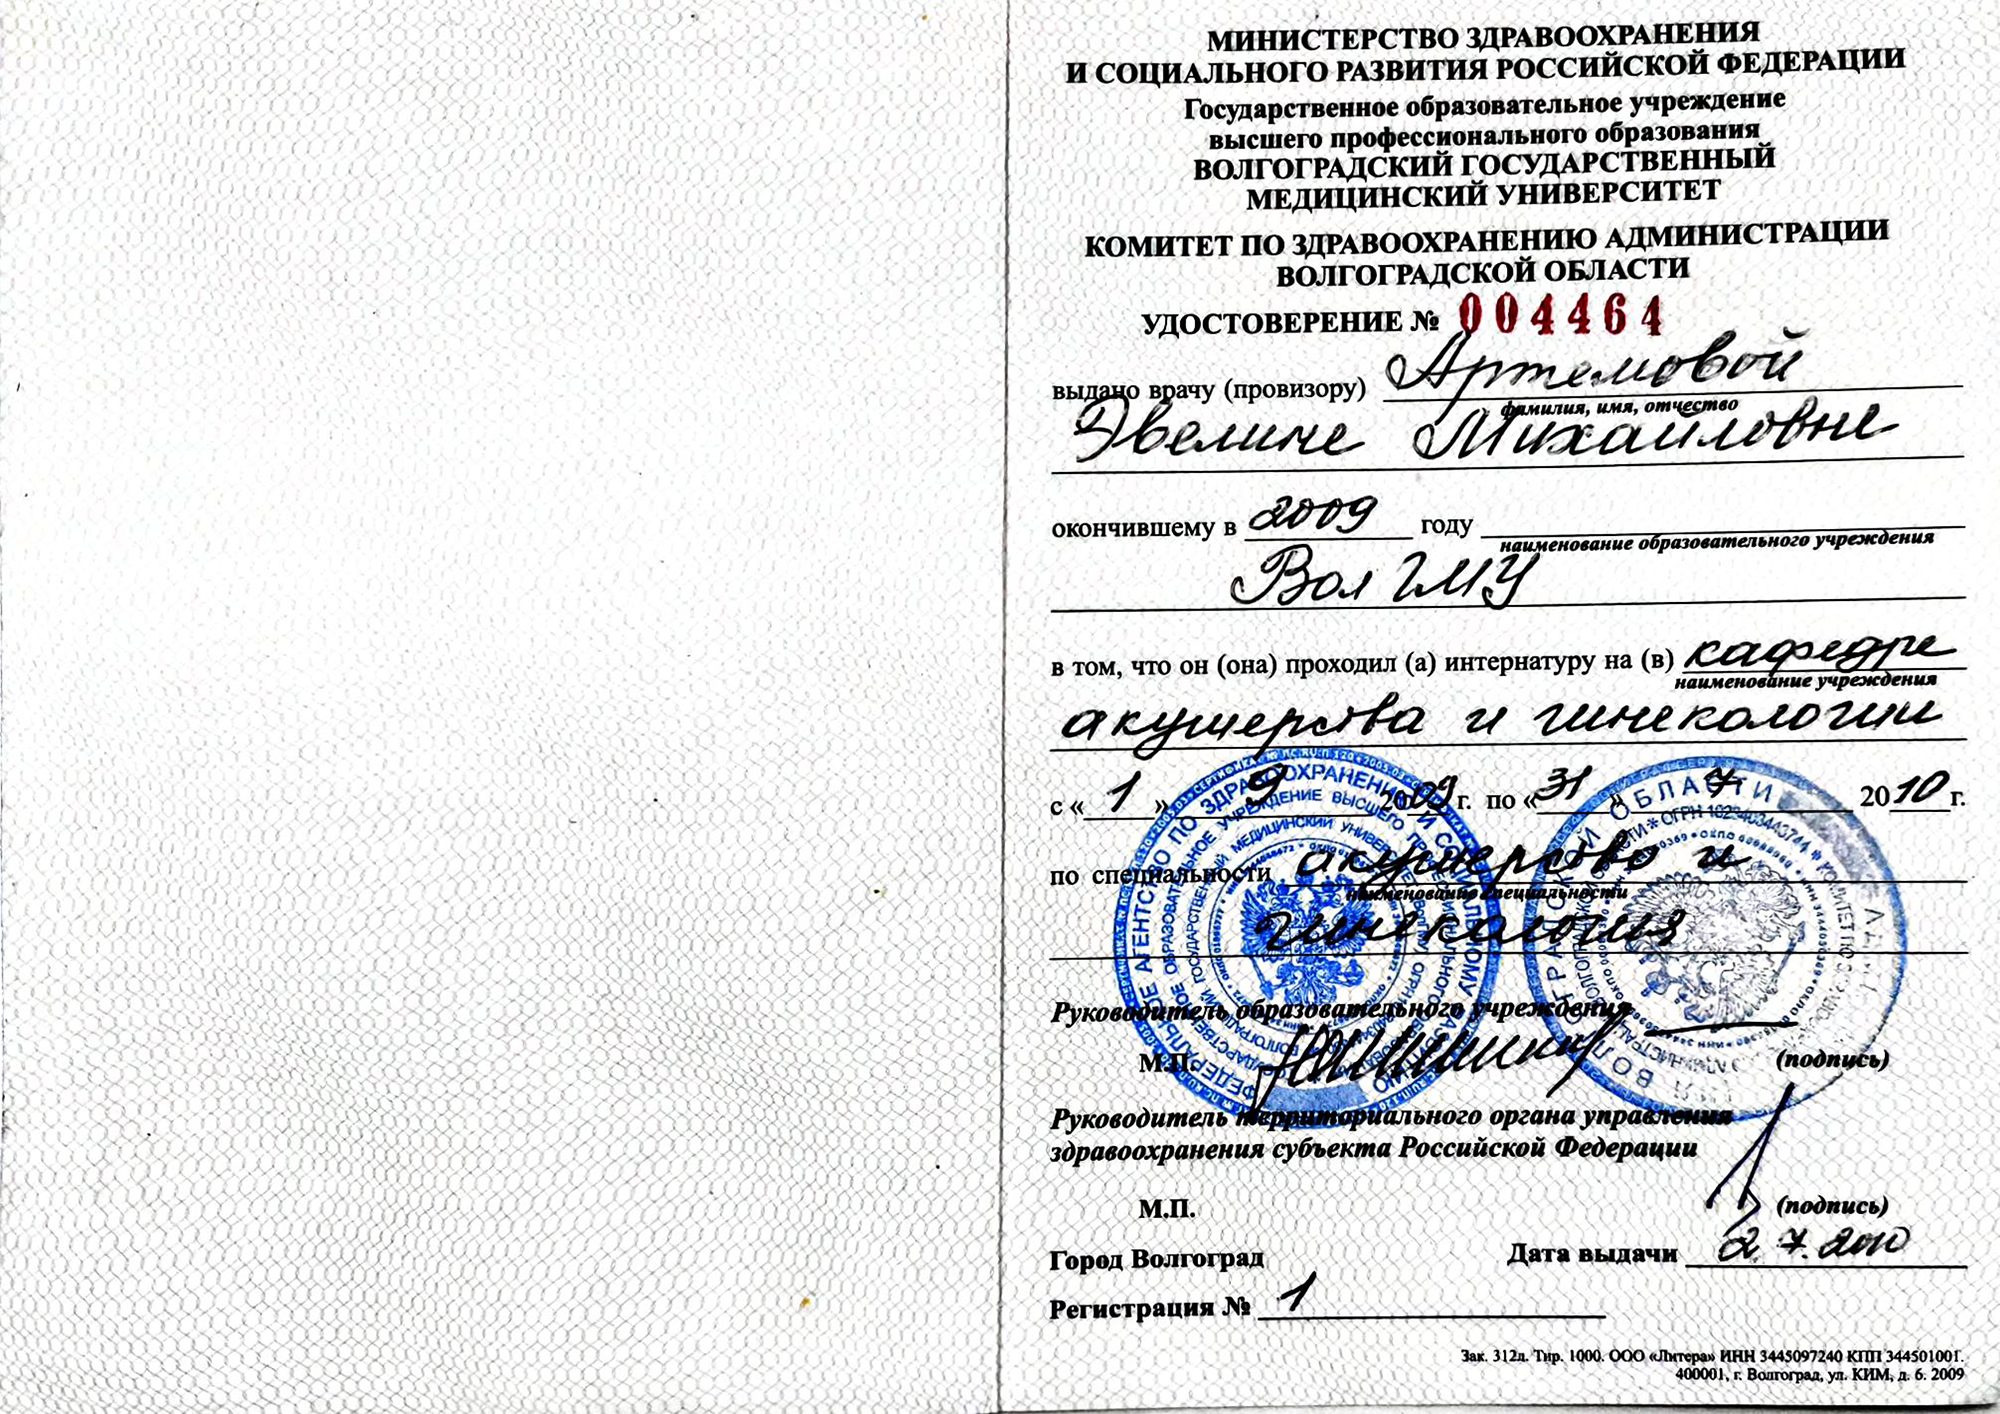 МИНИСТЕРСТВО ЗДРАВООХРАНЕНИЯ
И СОЦИАЛЬНОГО РАЗВИТИЯ РОССИЙСКОЙ ФЕДЕРАЦИИ
Государственное образовательное учреждение
высшего профессионального образования
ВОЛГОГРАДСКИЙ ГОСУДАРСТВЕННЫЙ
МЕДИЦИНСКИЙ УНИВЕРСИТЕТ
КОМИТЕТ ПО ЗДРАВООХРАНЕНИЮ АДМИНИСТРАЦИИ
ВОЛГОГРАДСКОЙ ОБЛАСТИ
УДОСТОВЕРЕНИЕ № 004464
выдано врачу (провизору) Артемовой
фамилия, имя, отчество
Эвелине Михайловне
окончившему в 2009 году
наименование образовательного учреждения
ВолГМУ
в том, что он (она) проходил (а) интернатуру на (в) кафедре
наименование учреждения
акушерства и гинекологии
с «1» 9 2009 г. по «31» 7 2010 г.
по специальности акушерство и
наименование специальности
гинекология
Руководитель образовательного учреждения
М.П. (подпись)
Руководитель территориального органа управления
здравоохранения субъекта Российской Федерации
М.П. (подпись)
Город Волгоград Дата выдачи 2.7.2010
Регистрация № 1
Зак. 312д. Тир. 1000. ООО «Литера» ИНН 3445097240 КПП 344501001.
400001, г. Волгоград, ул. КИМ, д. 6. 2009